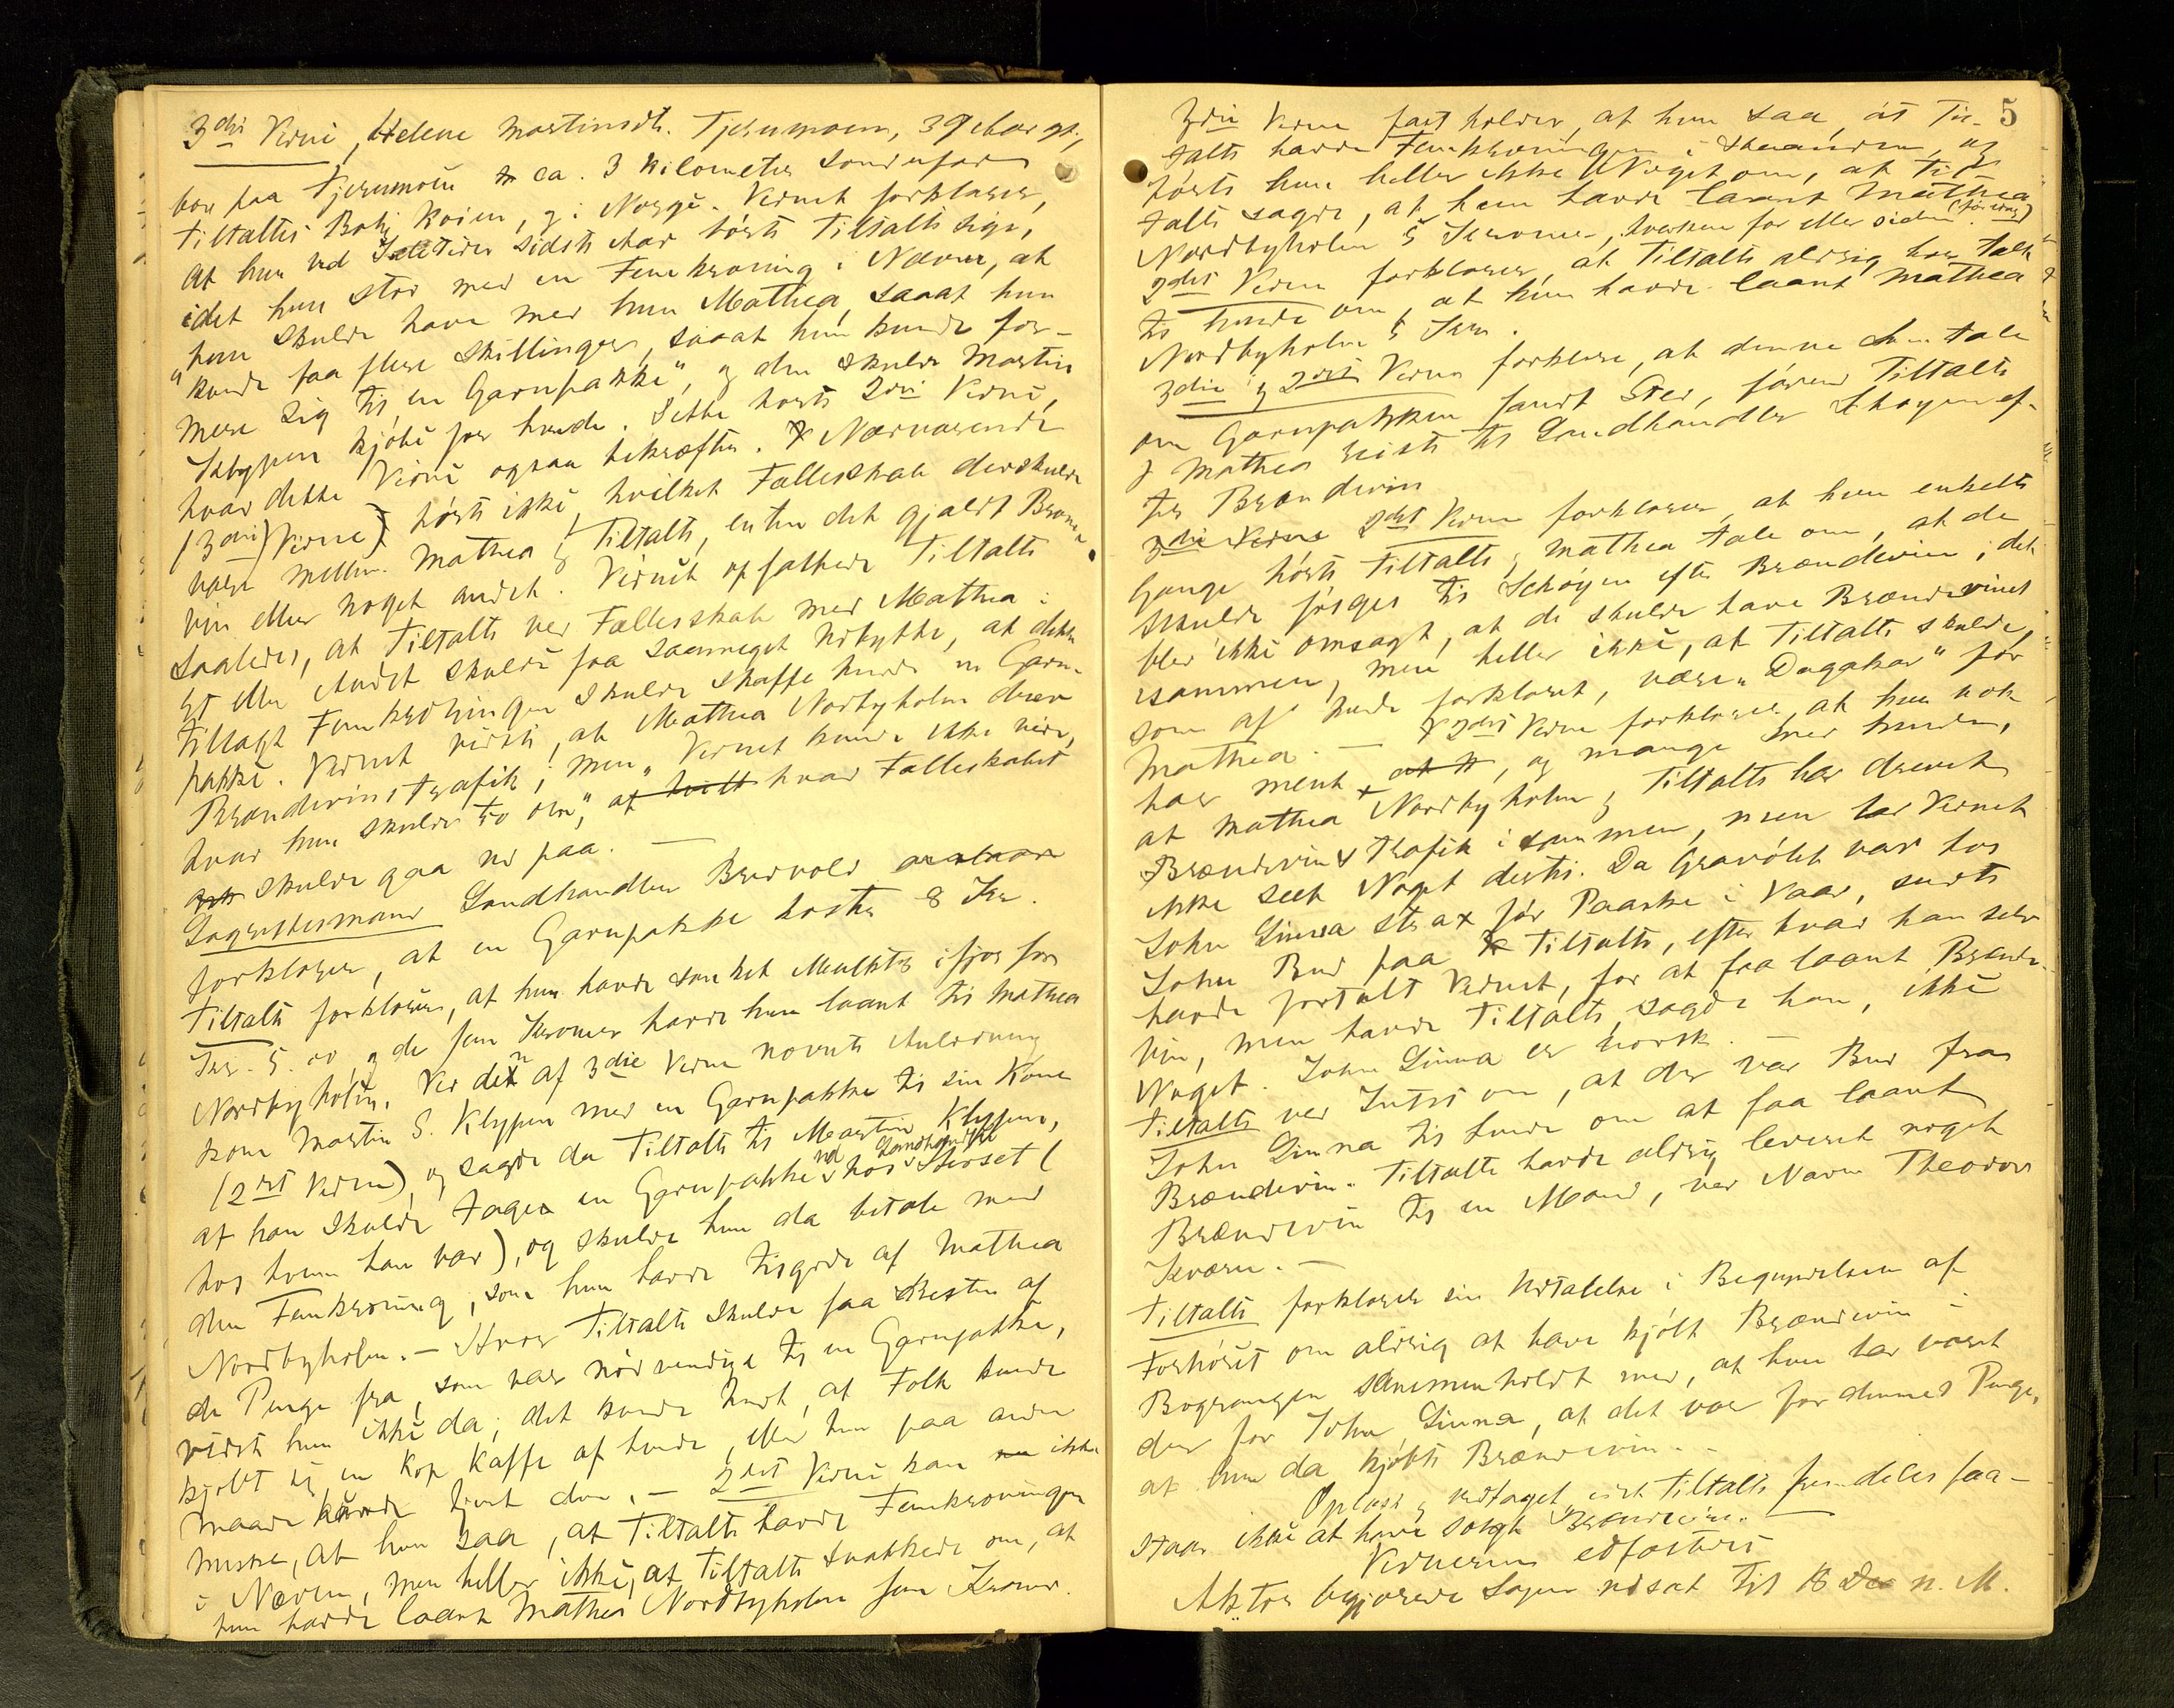 3die Vidne, Helene Martinsdt. Tjernmoen, 39 Aar gl.,
bor paa Tjernmoen ca. 3 Kilometer søndenfor
Tiltaltes Bolig Koien, og i Norge. Vidnet forklarer,
at hun ved Juletider sidste Aar hørte Tiltalte sige,
idet hun stod med en Femkroning i Næven, at
"hun skulde have med hun Mathea, saaat hun
kunde faa flere Skillinger, saaat hun kunde for-
mere sig til en Garnpakke", og den skulde Martin
Klyppen kjøbe for hende. Dette hørte 2det Vidne,
hvad dette Vidne ogsaa bekræfter. Nærværende
(3die) Vidne) hørte ikke, hvilket Fællesskab der skulde
være mellem Mathea og Tiltalte, enten det gjaldt Brænde-
vin eller noget andet. Vidnet opfattede Tiltalte
saaledes, at Tiltalte ved Fællesskab med Mathea i
Et eller Andet skulde faa saameget Udbytte, at dette
tillagt Femkroningen skulde skaffe hende en Garn-
pakke. Vidnet vidste, at Mathea Nordbyholm drev
Brændevinstrafik, men "Vidnet kunde ikke vide,
hvad hun skulde tro om", af hvad Fælleskabet
skulde gaa ud paa. —
Lagrettesmand Landhandler Bredvold
forklarer, at en Garnpakke koster 8 Kr.
Tiltalte forklarer, at hun havde sanket Multer ifjor for
Kr. 5.00, og de fem Kroner havde hun laant til Mathea
Nordbyholm. Ved den af 3die Vidne nævnte Anledning
kom Martin S. Klyppen med en Garnpakke til sin Kone
(2det Vidne), og sagde da Tiltalte til Martin Klyppen,
at han skulde tage en Garnpakke ud hos Landhandler (
hos hvem han var), og skulde hun da betale med
den Femkroning, som hun havde tilgode af Mathea
Nordbyholm. — Hvor Tiltalte skulde faa Resten af
de Penge fra, som var nødvendige til en Garnpakke,
vidste hun ikke da; det kunde hændt, at Folk kunde
kjøbt sig en Kop Kaffe af hende, eller hun paa anden
Maade kunde tjent den. — 2det Vidne kan ikke
minnes, at hun saa, at Tiltalte havde Femkroningen
i Næven, men heller ikke, at Tiltalte snakkede om, at
hun havde laant Mathea Nordbyholm fem Kroner.
5
3die Vidne fastholder, at hun saa, at Til-
talte havde Femkroningen i Haanden, og
hørte hun heller ikke Noget om, at Til-
talte sagde, at hun havde laant Mathea
Nordbyholm 5 Kroner, hverken før eller siden (før idag)
2det Vidne forklarer, at Tiltalte aldrig har talt
til hende om, at hun havde laant Mathea
Nordbyholm 5 Kr.
3die og 2det Vidne forklarer, at denne Tale
om Garnpakken fandt Sted, førend Tiltalte
og Mathea reiste til Landhandler Schøyen ef-
ter Brændevin
3die Vidne 2det Vidne forklarer, at hun enkelte
Gange hørte Tiltalte og Mathea tale om, at de
skulde følges til Schøyen efter Brændevin; det
blev ikke omsagt, at de skulde have Brændevinet
isammen, men heller ikke, at Tiltalte skulde,
som af hende forklaret, være "Dagakar" for
Mathea. — 2det Vidne forklarer, at hun nok
har ment, og mange med hende,
at Mathea Nordbyholm og Tiltalte har drevet
Brændevinstrafik isammen, men har Vidnet
ikke seet Noget dertil. Da Gravølet var hos
John Linna strax før Paaske i Vaar, sendte
John Bud paa Tiltalte, efter hvad han selv
havde fortalt Vidnet, for at faa laant Brænde-
vin, men havde Tiltalte, sagde han, ikke
Noget. John Linna er norsk. —
Tiltalte ved Intet om, at der var Bud fra
John Linna til hende om at faa laant
Brændevin. Tiltalte havde aldrig leveret noget
Brændevin til en Mand, ved Navn Theodor
Kværn. —
Tiltalte forklarer sin Udtalelse i Begyndelsen af
Forhøret om aldrig at have kjøbt Brændevin i
Bograngen sammenholdt med, at hun har været
der for John Linna, at det var for dennes Penge,
at hun da kjøbte Brændevin. —
Oplæst og vedtaget, idet Tiltalte fremdeles paa-
staar ikke at have solgt Brændevin. —
Vidnerne edfæstet
Aktor begjærede Sagen udsat til n. M.